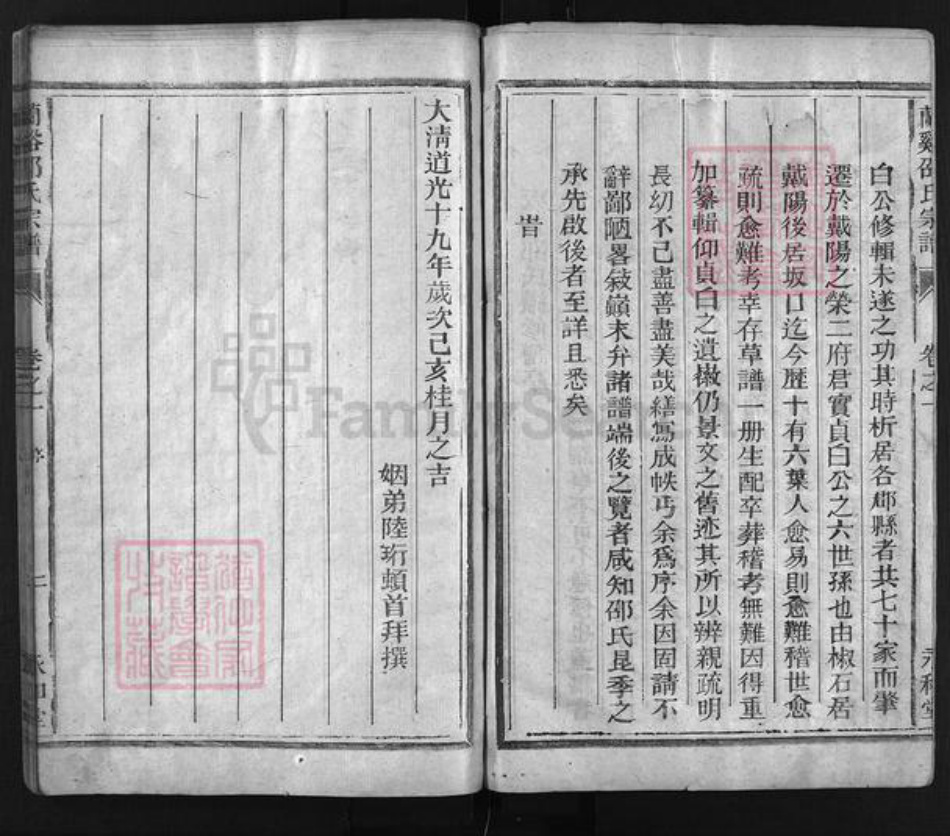 蘭谿邵氏宗譜 卷之一 永和堂
白公修輯未遂之功其時析居各郡縣者共七十家而肇
遷於戴陽之榮二府君實貞白公之六世孫也由椒石居
戴陽後居坂口迄今歷十有六葉人愈易則愈難稽世愈
疏則愈難考幸存草譜一册生配卒葬稽考無難因得重
加纂輯仰貞白之遺徽仍景文之舊迹其所以辨親疏明
長幼不已盡善盡美哉繕寫成帙丐余為序余因固請不
辭鄙陋畧敍巔末弁諸譜端後之覽者咸知邵氏昆季之
承先啟後者至詳且悉矣
旹
大清道光十九年歲次己亥桂月之吉
姻弟陸珩頓首拜撰
蘭谿邵氏宗譜 卷之一 序 二 永和堂
FamilySearch